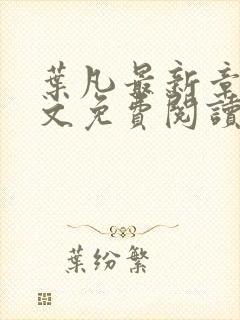 葉凡最新章
文免費閱讀
葉紛繁